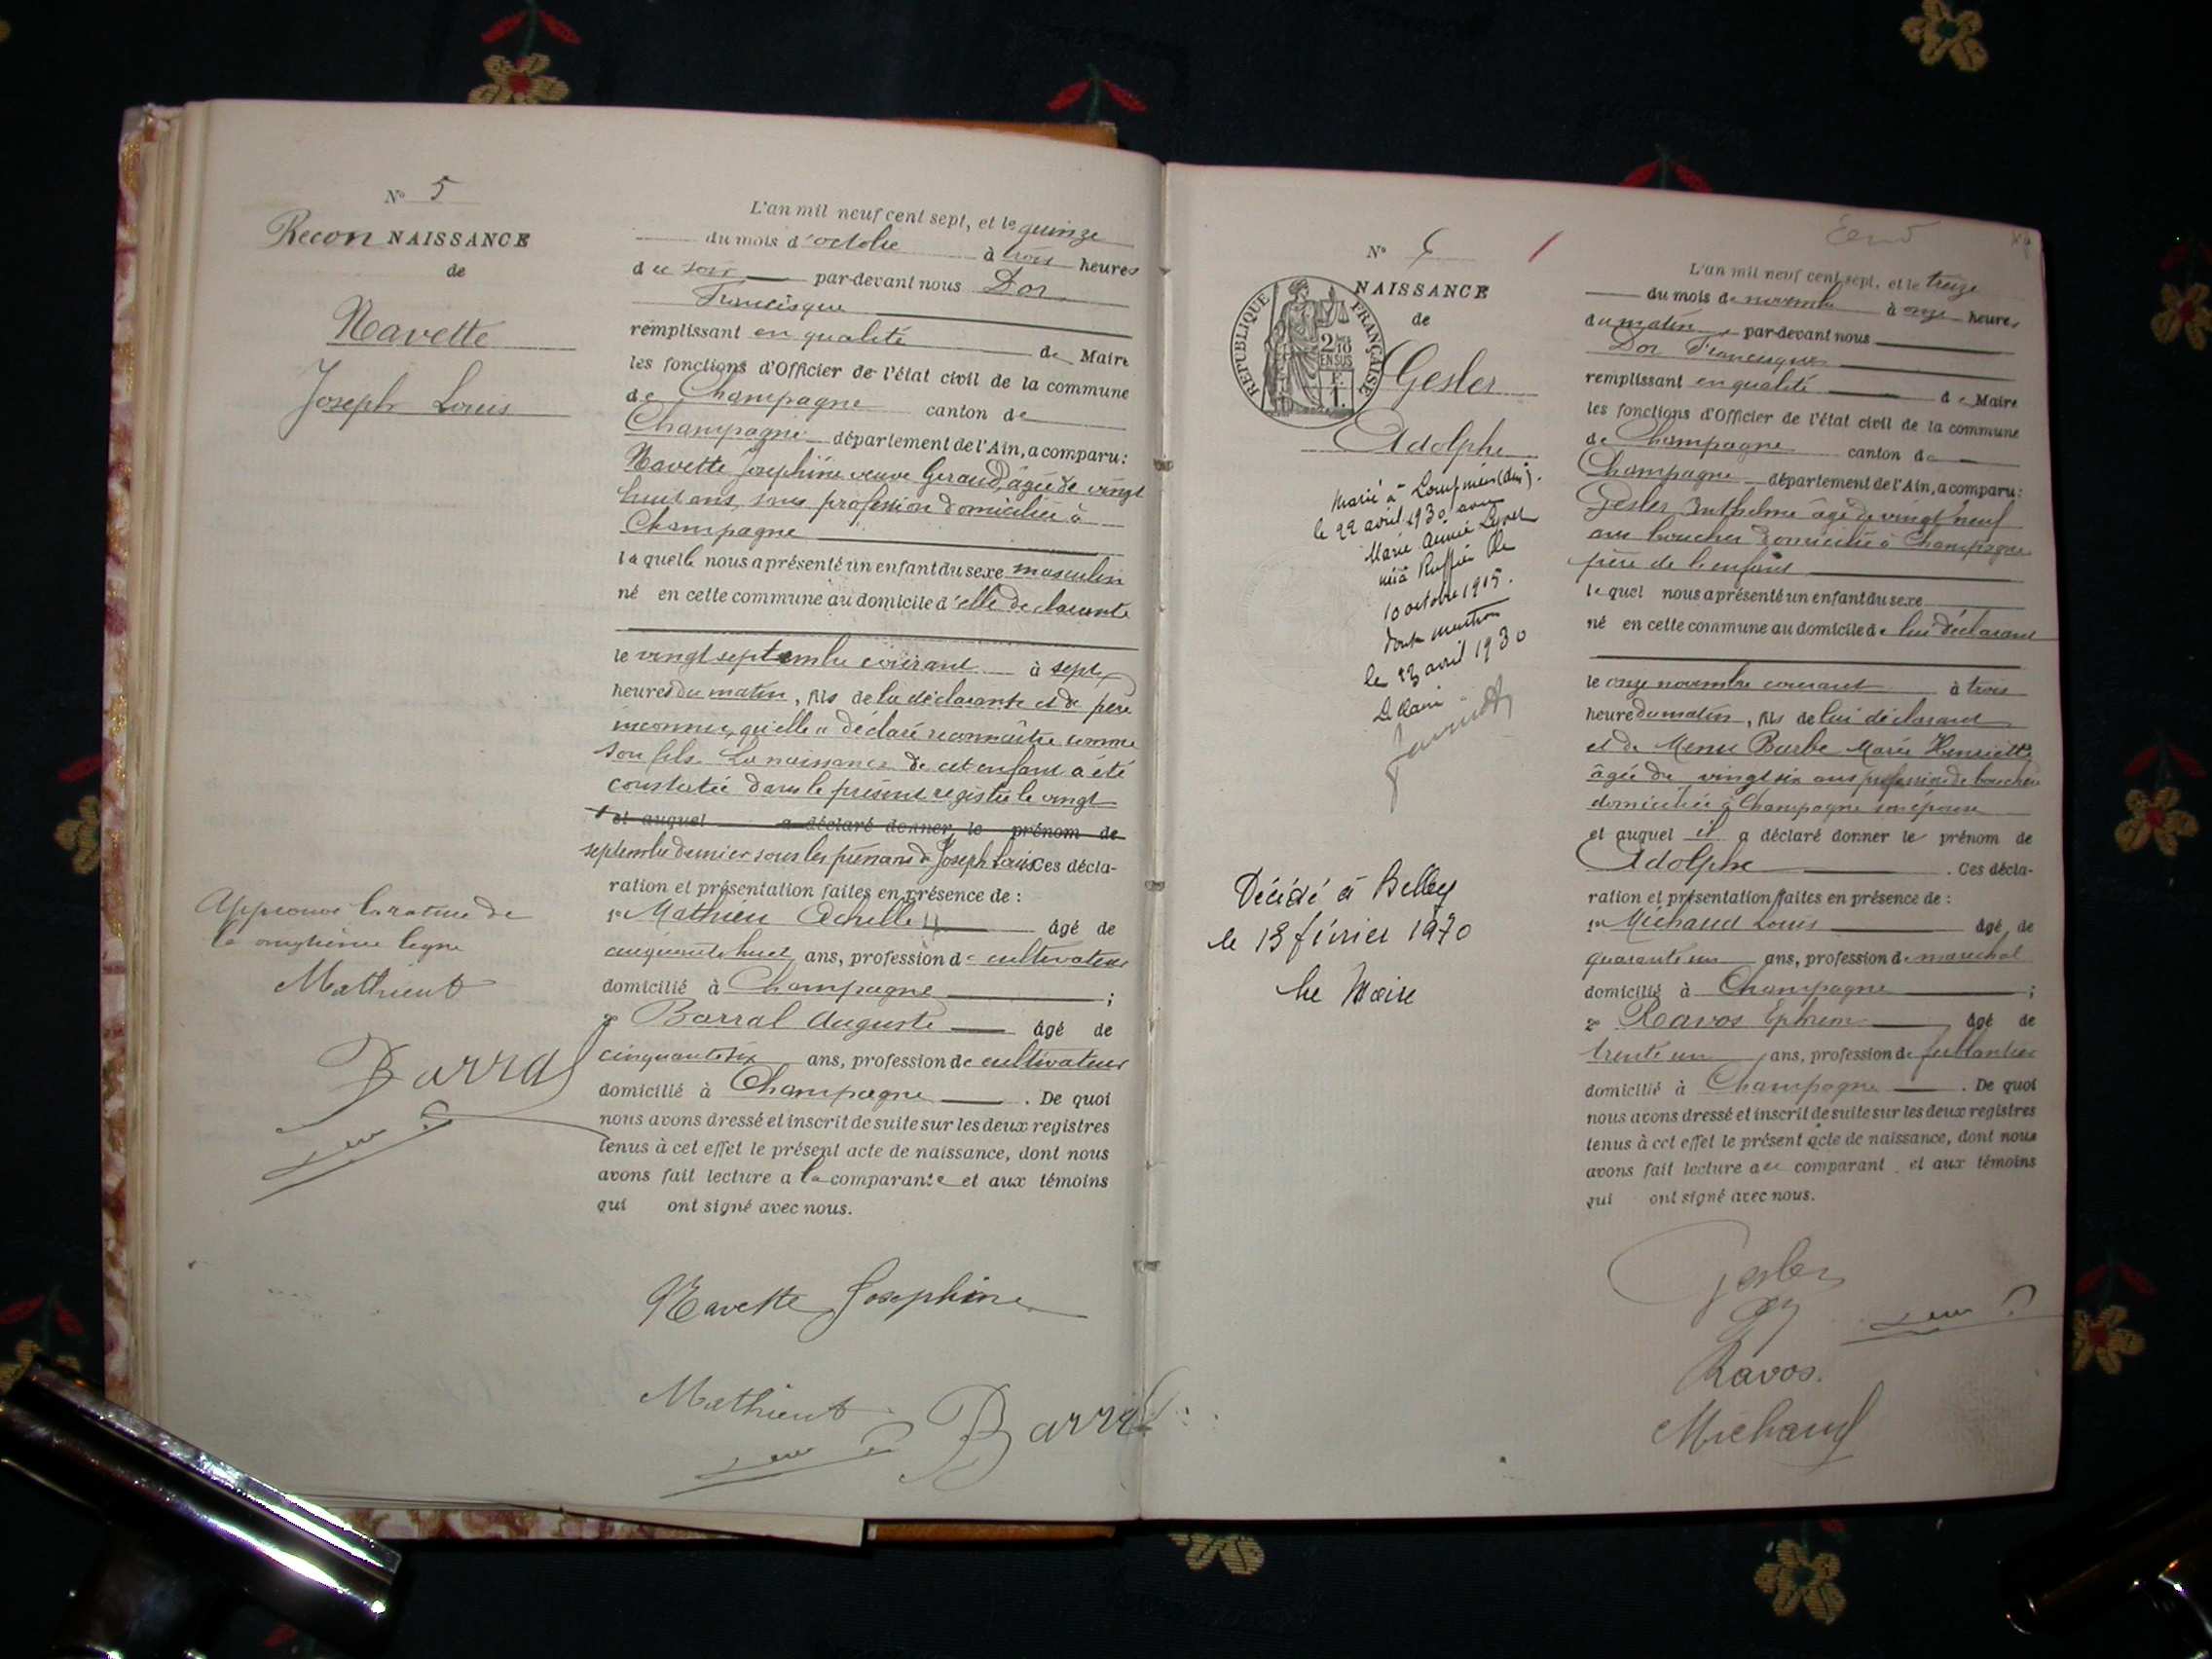 N° 5
Recon NAISSANCE
de
Navette
Joseph Louis
Approuvé la rature de
la onzième ligne
Mathieu
Barral
L'an mil neuf cent sept, et le quinze
du mois d'octobre à trois heures
du soir par-devant nous Dor
Francisque
remplissant en qualité de Maire
les fonctions d'Officier de l'état civil de la commune
de Champagne canton de
Champagne département de l'Ain, a comparu:
Navette Joséphine veuve Geraud, âgée de vingt
huit ans, sans profession domiciliée à
Champagne
laquelle nous a présenté un enfant du sexe masculin
né en cette commune au domicile d'elle déclarante
le vingt septembre courant à sept
heures du matin, fils de la déclarante et de père
inconnu, qu'elle a déclaré reconnaître comme
son fils. La naissance de cet enfant a été
constatée dans le présent registre le vingt
et auquel a déclaré donner le prénom de
septembre dernier sous les prénoms de Joseph Louis Ces décla-
ration et présentation faites en présence de :
1° Mathieu Achille âgé de
cinquante huit ans, profession de cultivateur
domicilié à Champagne ;
2° Barral Auguste âgé de
cinquante six ans, profession de cultivateur
domicilié à Champagne . De quoi
nous avons dressé et inscrit de suite sur les deux registres
tenus à cet effet le présent acte de naissance, dont nous
avons fait lecture a la comparante et aux témoins
qui ont signé avec nous.
Navette Josephine
Mathieu
Barral
N° 6
NAISSANCE
de
REPUBLIQUE FRANÇAISE
2/10 EN SUS
1.
Gesler
Adolphe
Marié à (Ain).
le 22 avril 1930 avec
Marie Aimée
née à Ruffieu le
10 octobre 1915.
Dont mention
le 23 avril 1930
Le Maire
Décédé à Belley
le 13 février 1970
Le Maire
L'an mil neuf cent sept, et le treize
du mois de novembre à onze heures
du matin par-devant nous
Dor Francisque
remplissant en qualité de Maire
les fonctions d'Officier de l'état civil de la commune
de Champagne canton de
Champagne département de l'Ain, a comparu:
Gesler Anthelme âgé de vingt neuf
ans boucher domicilié à Champagne
père de l'enfant
lequel nous a présenté un enfant du sexe
né en cette commune au domicile de lui déclarant
le onze novembre courant à trois
heure du matin, fils de lui déclarant
et de Barbe Marie Henriette
âgée de vingt six ans profession de bouchère
domiciliée à Champagne son épouse
et auquel il a déclaré donner le prénom de
Adolphe . Ces décla-
ration et présentation faites en présence de :
1° Michaud Louis âgé de
quarante un ans, profession de maréchal
domicilié à Champagne ;
2° Ravos Ephrem âgé de
trente un ans, profession de ferblantier
domicilié à Champagne . De quoi
nous avons dressé et inscrit de suite sur les deux registres
tenus à cet effet le présent acte de naissance, dont nous
avons fait lecture au comparant et aux témoins
qui ont signé avec nous.
Gesler
Ravos.
Michaud